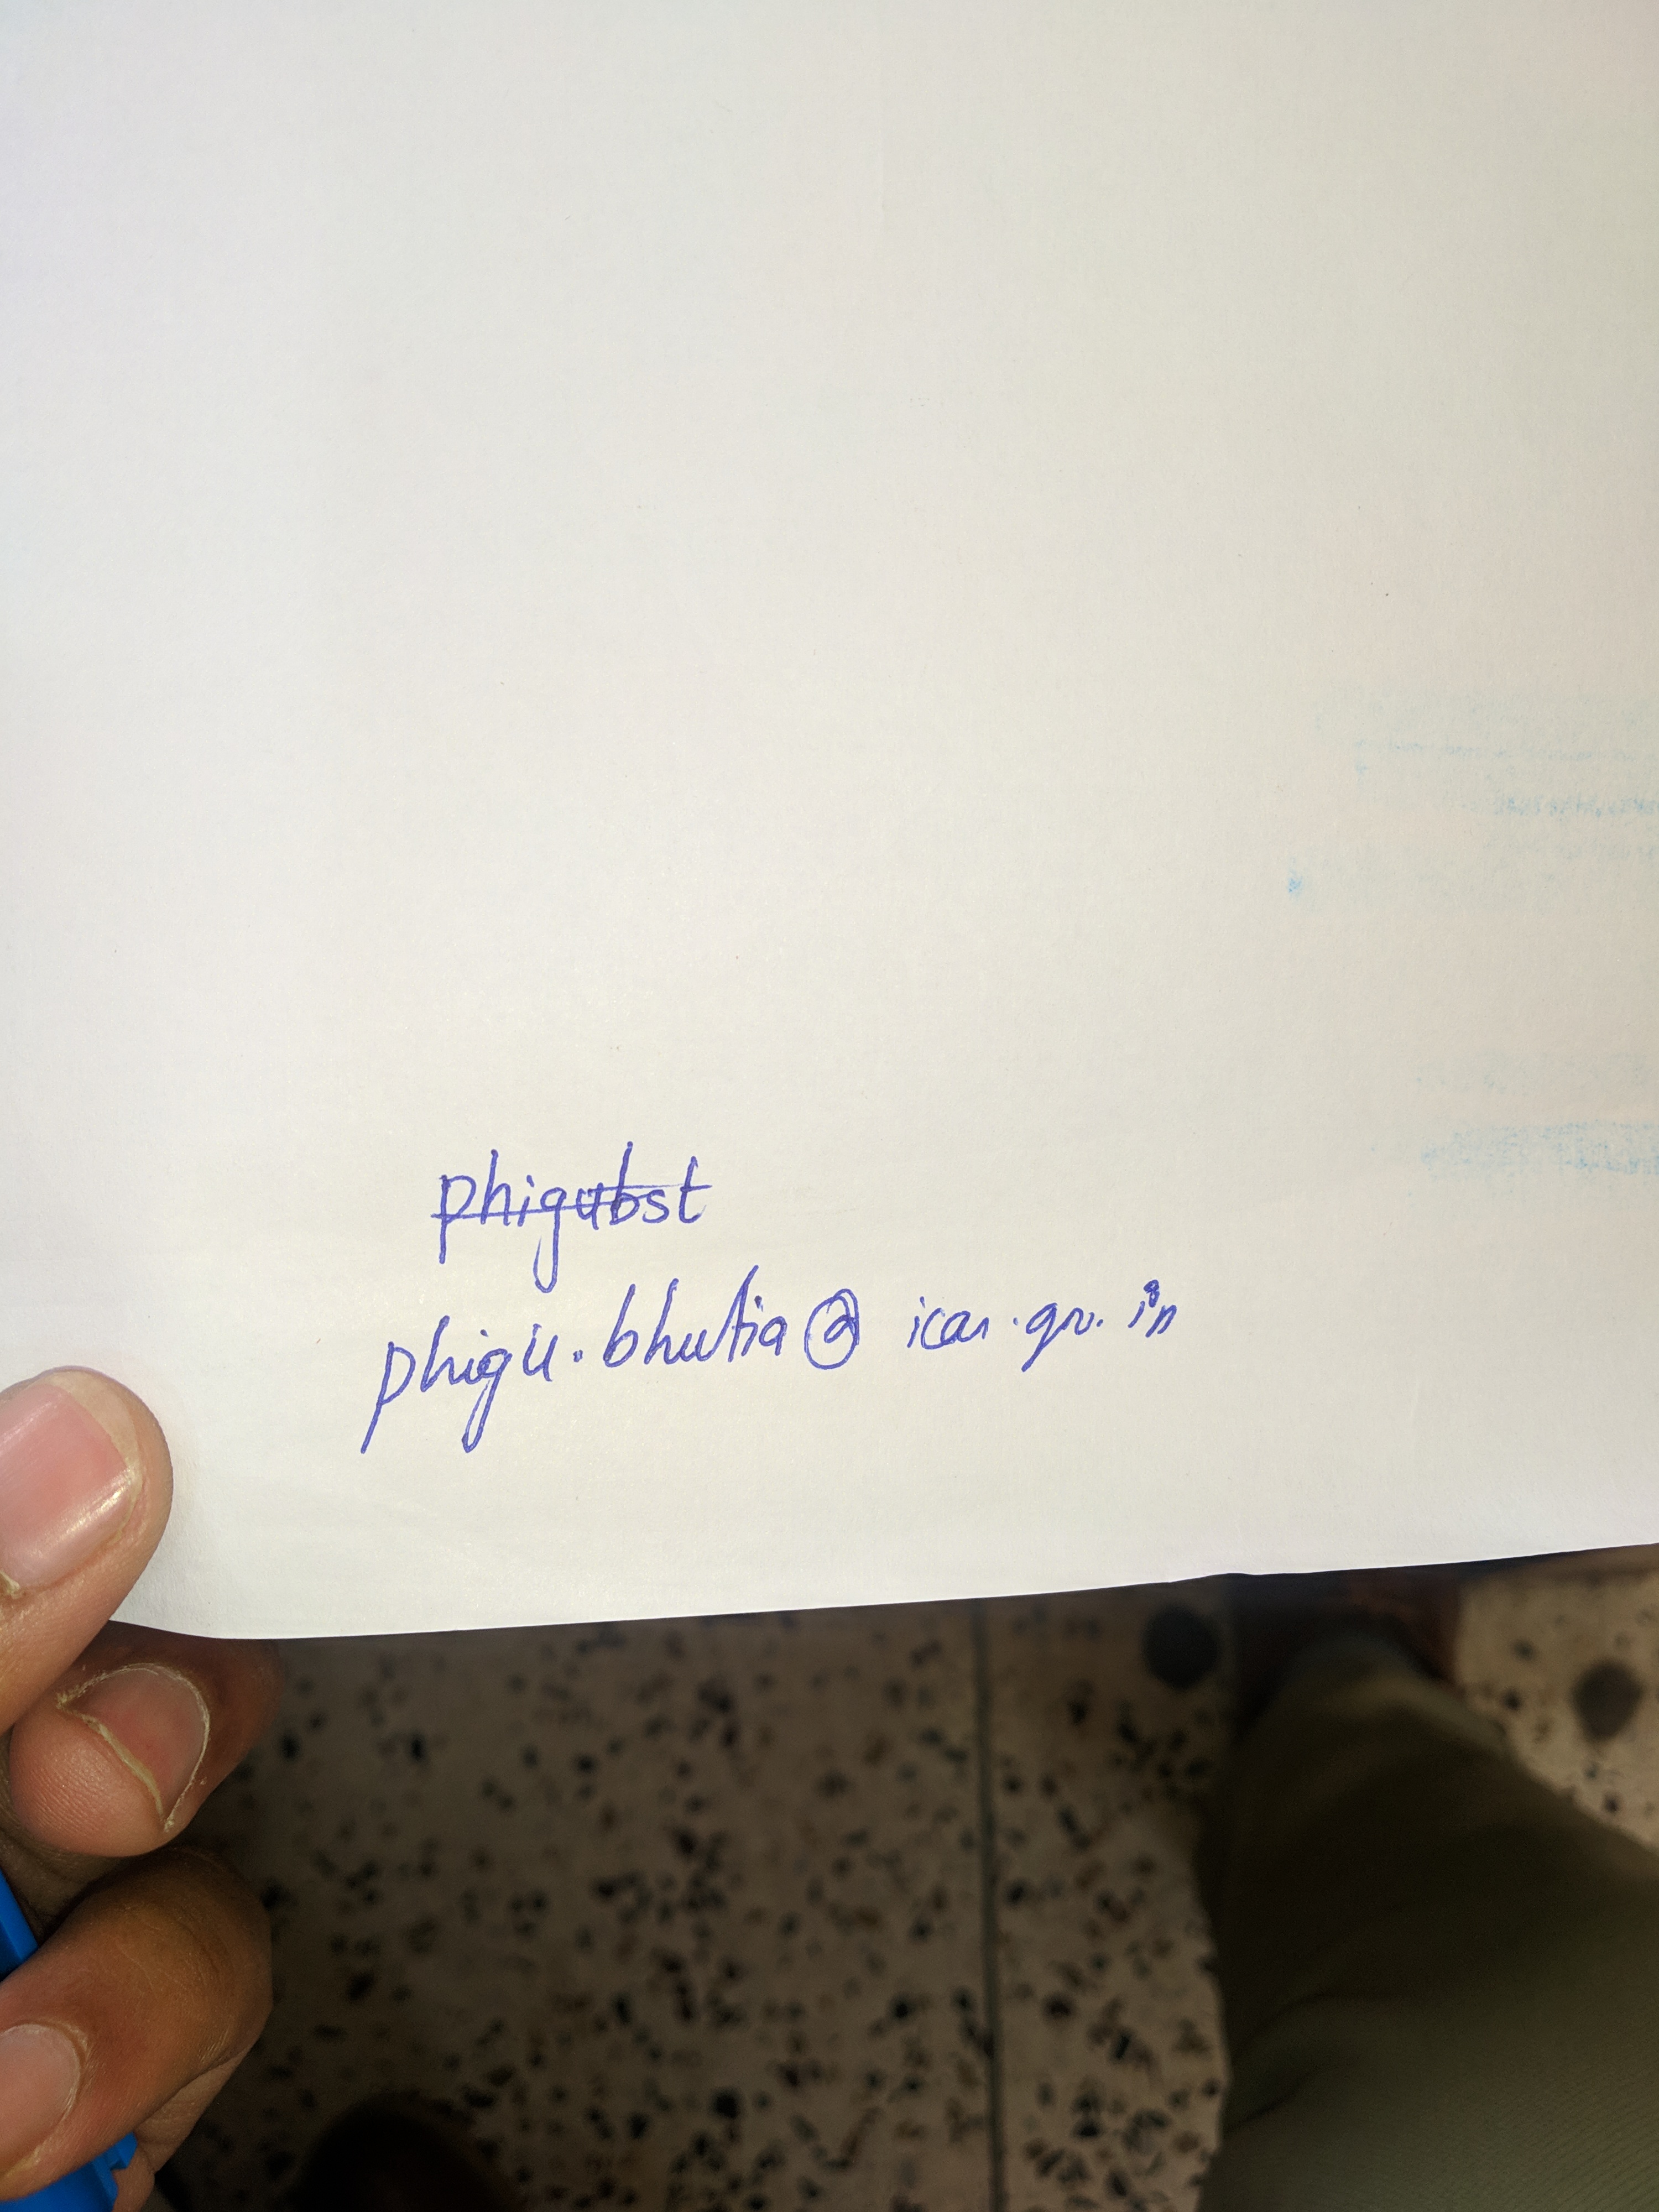 phigubst
phigu.bhutia@icar.gov.in